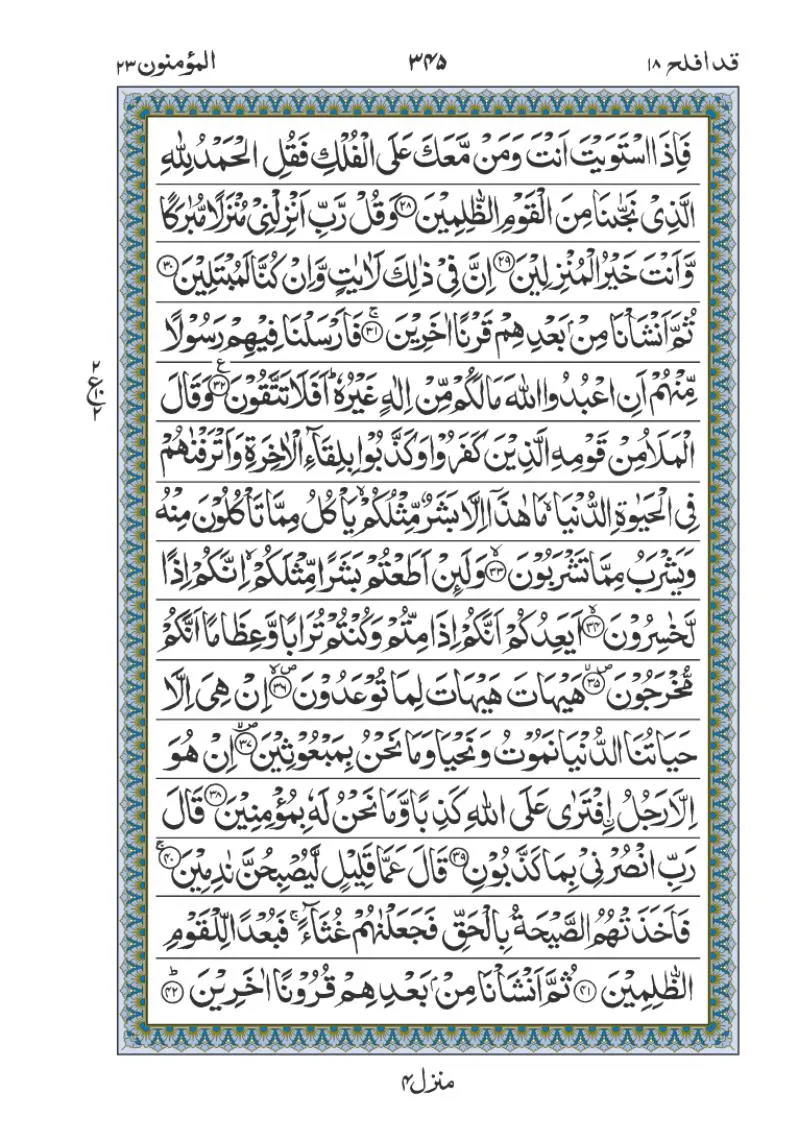 قد افلح ١٨
٣٤٥
المؤمنون ٢٣
فَاِذَا اسْتَوَيْتَ اَنْتَ وَمَنْ مَّعَكَ عَلَى الْفُلْكِ فَقُلِ الْحَمْدُ لِلّٰهِ
الَّذِىْ نَجّٰىنَا مِنَ الْقَوْمِ الظّٰلِمِيْنَ ﴿٢٨﴾ وَقُلْ رَّبِّ اَنْزِلْنِىْ مُنْزَلًا مُّبٰرَكًا
وَّاَنْتَ خَيْرُ الْمُنْزِلِيْنَ ﴿٢٩﴾ اِنَّ فِىْ ذٰلِكَ لَاٰيٰتٍ وَّاِنْ كُنَّا لَمُبْتَلِيْنَ ﴿٣٠﴾
ثُمَّ اَنْشَاْنَا مِنْۢ بَعْدِهِمْ قَرْنًا اٰخَرِيْنَ ۚ﴿٣١﴾ فَاَرْسَلْنَا فِيْهِمْ رَسُوْلًا
مِّنْهُمْ اَنِ اعْبُدُوا اللّٰهَ مَا لَكُمْ مِّنْ اِلٰهٍ غَيْرُهٗ ؕ اَفَلَا تَتَّقُوْنَ ﴿٣٢﴾ ع وَقَالَ
الْمَلَاُ مِنْ قَوْمِهِ الَّذِيْنَ كَفَرُوْا وَكَذَّبُوْا بِلِقَآءِ الْاٰخِرَةِ وَاَتْرَفْنٰهُمْ
فِى الْحَيٰوةِ الدُّنْيَا ۙ مَا هٰذَاۤ اِلَّا بَشَرٌ مِّثْلُكُمْ ۙ يَاْكُلُ مِمَّا تَاْكُلُوْنَ مِنْهُ
وَيَشْرَبُ مِمَّا تَشْرَبُوْنَ ۙ﴿٣٣﴾ وَلَئِنْ اَطَعْتُمْ بَشَرًا مِّثْلَكُمْ ۙ اِنَّكُمْ اِذًا
لَّخٰسِرُوْنَ ۙ﴿٣٤﴾ اَيَعِدُكُمْ اَنَّكُمْ اِذَا مِتُّمْ وَكُنْتُمْ تُرَابًا وَّعِظَامًا اَنَّكُمْ
مُّخْرَجُوْنَ ۙ﴿٣٥﴾ هَيْهَاتَ هَيْهَاتَ لِمَا تُوْعَدُوْنَ ۙ﴿٣٦﴾ اِنْ هِىَ اِلَّا
حَيَاتُنَا الدُّنْيَا نَمُوْتُ وَنَحْيَا وَمَا نَحْنُ بِمَبْعُوْثِيْنَ ۙ﴿٣٧﴾ اِنْ هُوَ
اِلَّا رَجُلُ اۨفْتَرٰى عَلَى اللّٰهِ كَذِبًا وَّمَا نَحْنُ لَهٗ بِمُؤْمِنِيْنَ ﴿٣٨﴾ قَالَ
رَبِّ انْصُرْنِىْ بِمَا كَذَّبُوْنِ ﴿٣٩﴾ قَالَ عَمَّا قَلِيْلٍ لَّيُصْبِحُنَّ نٰدِمِيْنَ ۚ﴿٤٠﴾
فَاَخَذَتْهُمُ الصَّيْحَةُ بِالْحَقِّ فَجَعَلْنٰهُمْ غُثَآءً ۚ فَبُعْدًا لِّلْقَوْمِ
الظّٰلِمِيْنَ ﴿٤١﴾ ثُمَّ اَنْشَاْنَا مِنْۢ بَعْدِهِمْ قُرُوْنًا اٰخَرِيْنَ ؕ﴿٤٢﴾
٢
ع ١٠
٢
منزل ٤